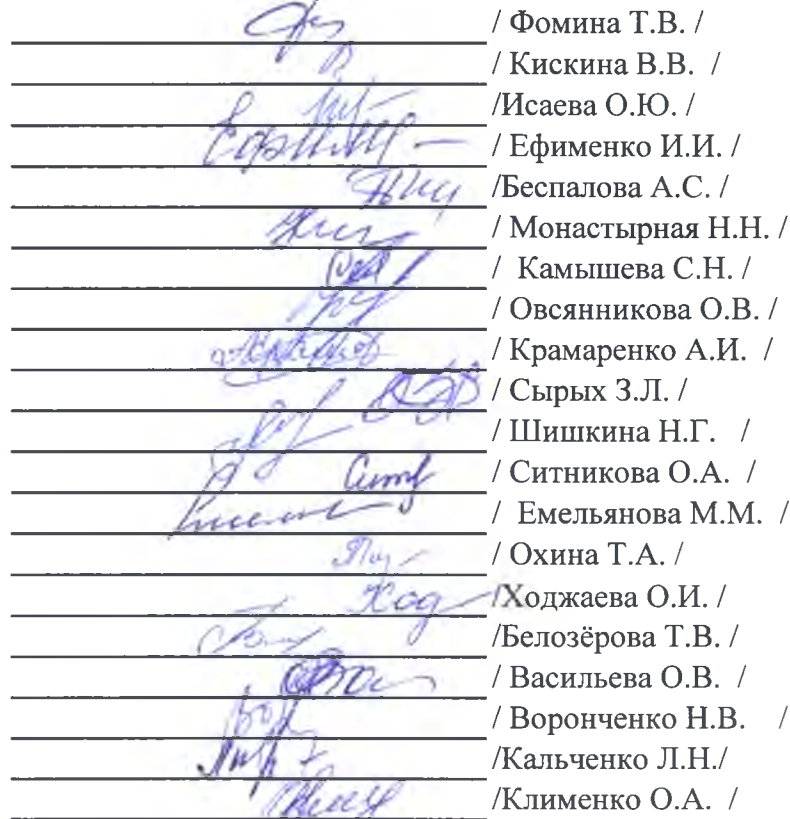 / Фомина Т.В. /
/ Кискина В.В. /
/Исаева О.Ю. /
/ Ефименко И.И. /
/Беспалова А.С. /
/ Монастырная Н.Н. /
/ Камышева С.Н. /
/ Овсянникова О.В. /
/ Крамаренко А.И. /
/ Сырых З.Л. /
/ Шишкина Н.Г. /
/ Ситникова О.А. /
/ Емельянова М.М. /
/ Охина Т.А. /
/Ходжаева О.И. /
/Белозёрова Т.В. /
/ Васильева О.В. /
/ Воронченко Н.В. /
/Кальченко Л.Н./
/Клименко О.А. /